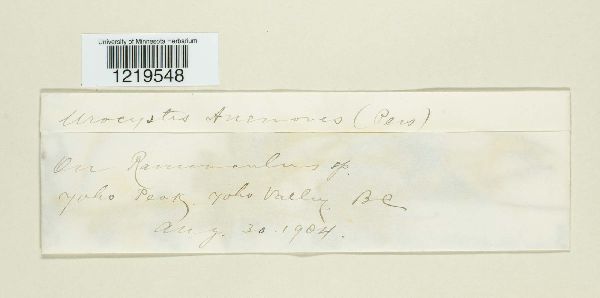 University of Minnesota Herbarium
1219548
Urocystis Anemones (Pers)
On Ranunculus sp.
Yoho Peak. Yoho Valley. B C
Aug. 30. 1904.